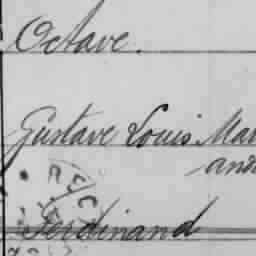 Octave.
Gustave Louis Mar
Ferdinand